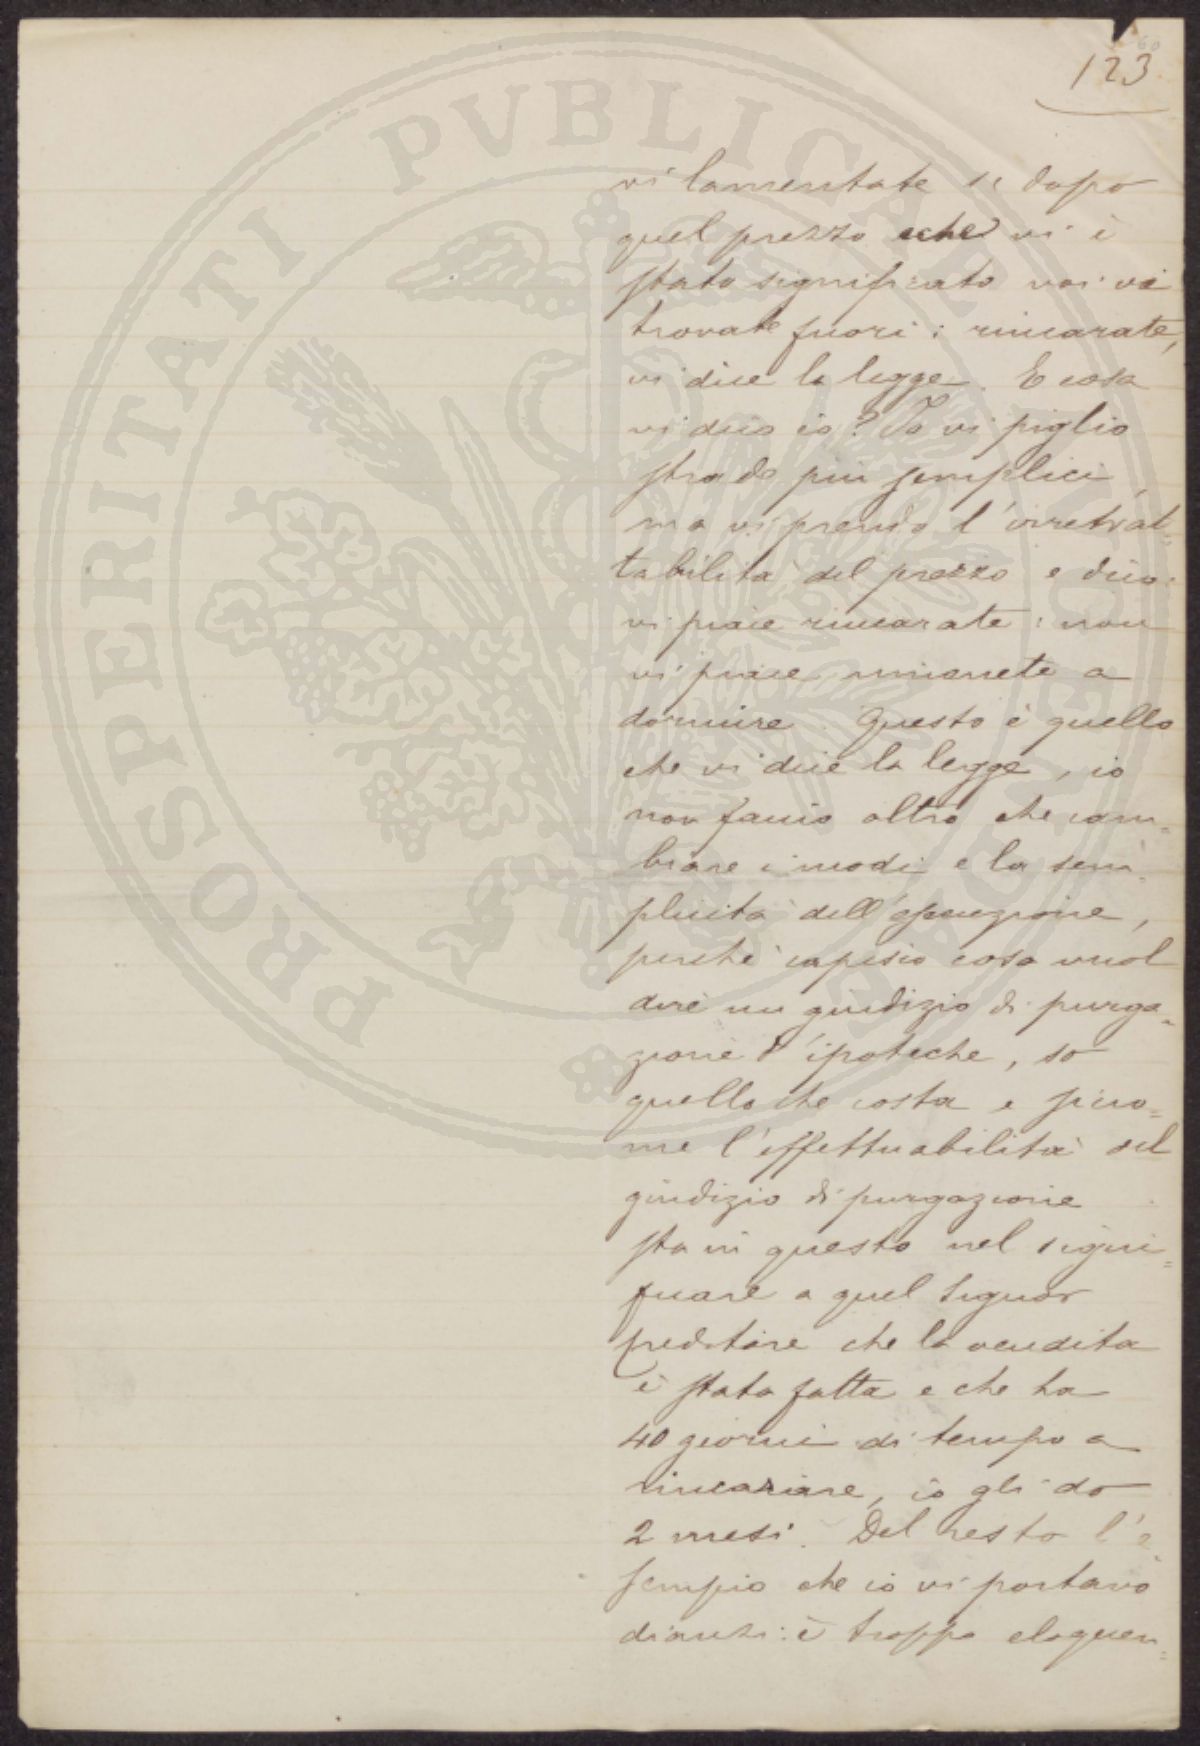 60
123
vi lamentate se dopo
quel prezzo che vi è
stato significato voi vi
trovate fuori: rincarate,
vi dice la legge. E cosa
vi dico io? Io vi piglio
strade più semplici,
ma vi prendo l'irretrat=
tabilità del prezzo e dico:
vi piace rincarate: non
vi piace rimanete a
dormire. Questo è quello
che vi dice la legge, io
non faccio altro che cam=
biare i modi e la sem=
plicità dell'operazione,
perchè capisco cosa vuol
dire un giudizio di purga=
zione d'ipoteche, so
quello che costa e sicco=
me l'effettuabilità del
giudizio di purgazione
sta in questo nel signi=
ficare a quel signor
creditore che la vendita
è stata fatta e che ha
40 giorni di tempo a
rincarare, io gli do
2 mesi. Del resto l'e=
sempio che io vi portavo
dianzi: è troppo eloquen=
PROSPERITATI PVBLICAE